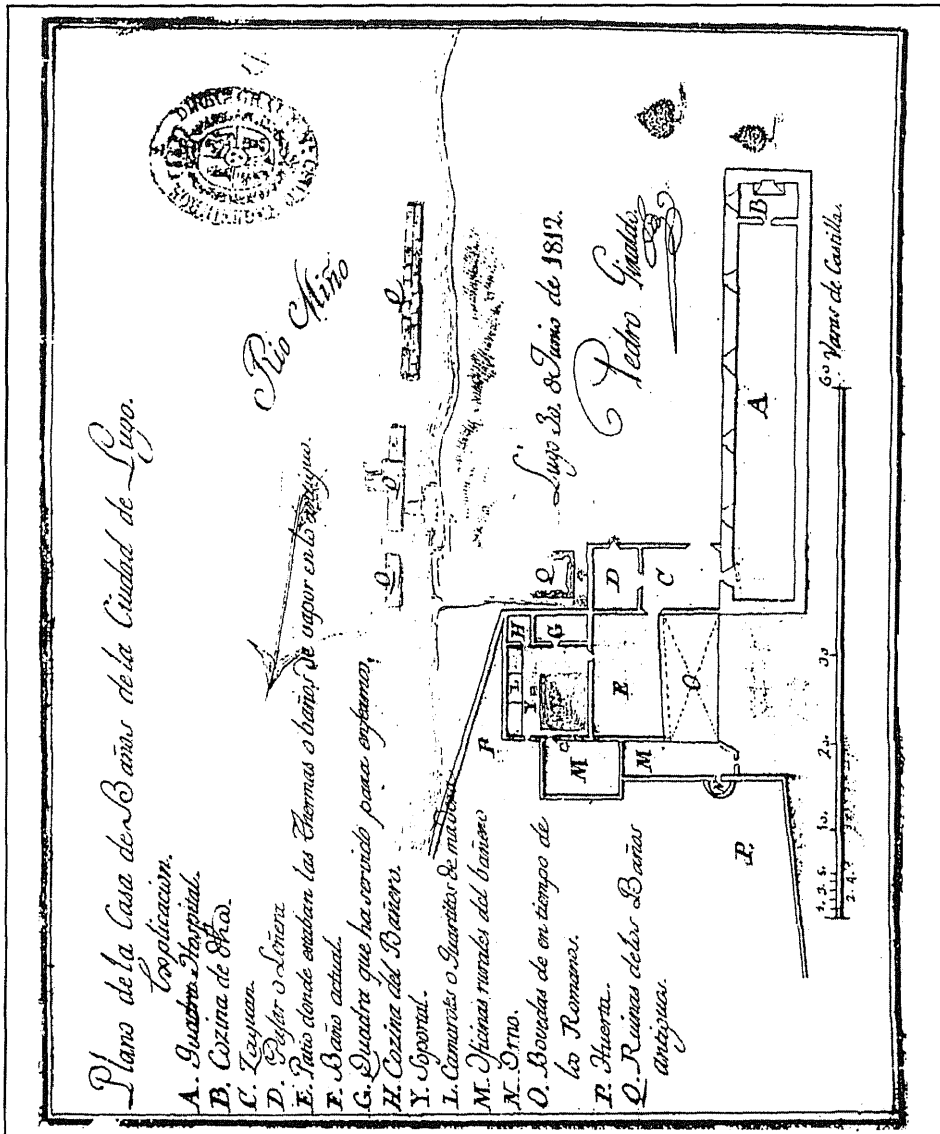 Plano de la Casa de Baños de la Ciudad de Lugo.
Explicación.
A. Quadra Hospital.
B. Cozina de dha.
C. Zaguan.
D. Pajar o Leñera
E. Patio donde estaban las Thermas o baños de vapor en lo antiguo.
F. Baño actual.
G. Quadra que ha servido para enfermos.
H. Cozina del Bañero.
Y. Soportal.
L. Camarotes o Quartitos de madera
M. Oficinas rurales del bañero
N. Orno.
O. Bovedas de en tiempo de
los Romanos.
P. Huerta.
Q. Ruinas de los Baños
antiguos.
Rio Miño
Lugo 30 de Junio de 1812.
Pedro Giraldo
Q
Q
Q
Q
H
G
L
Y
F
D
C
E
O
M
M
N
P
A
B
1. 3. 5. 10. 20. 30 60 Varas de Castilla.
2. 4.